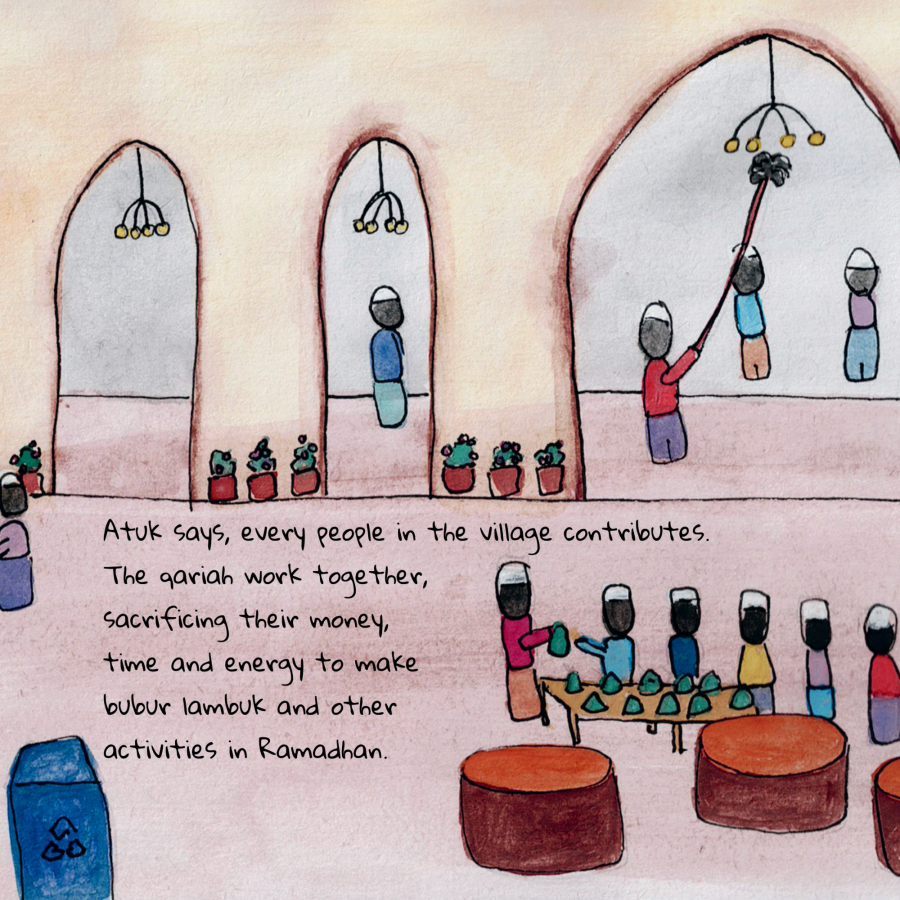 Atuk says, every people in the village contributes.
The qariah work together,
sacrificing their money,
time and energy to make
bubur lambuk and other
activities in Ramadhan.